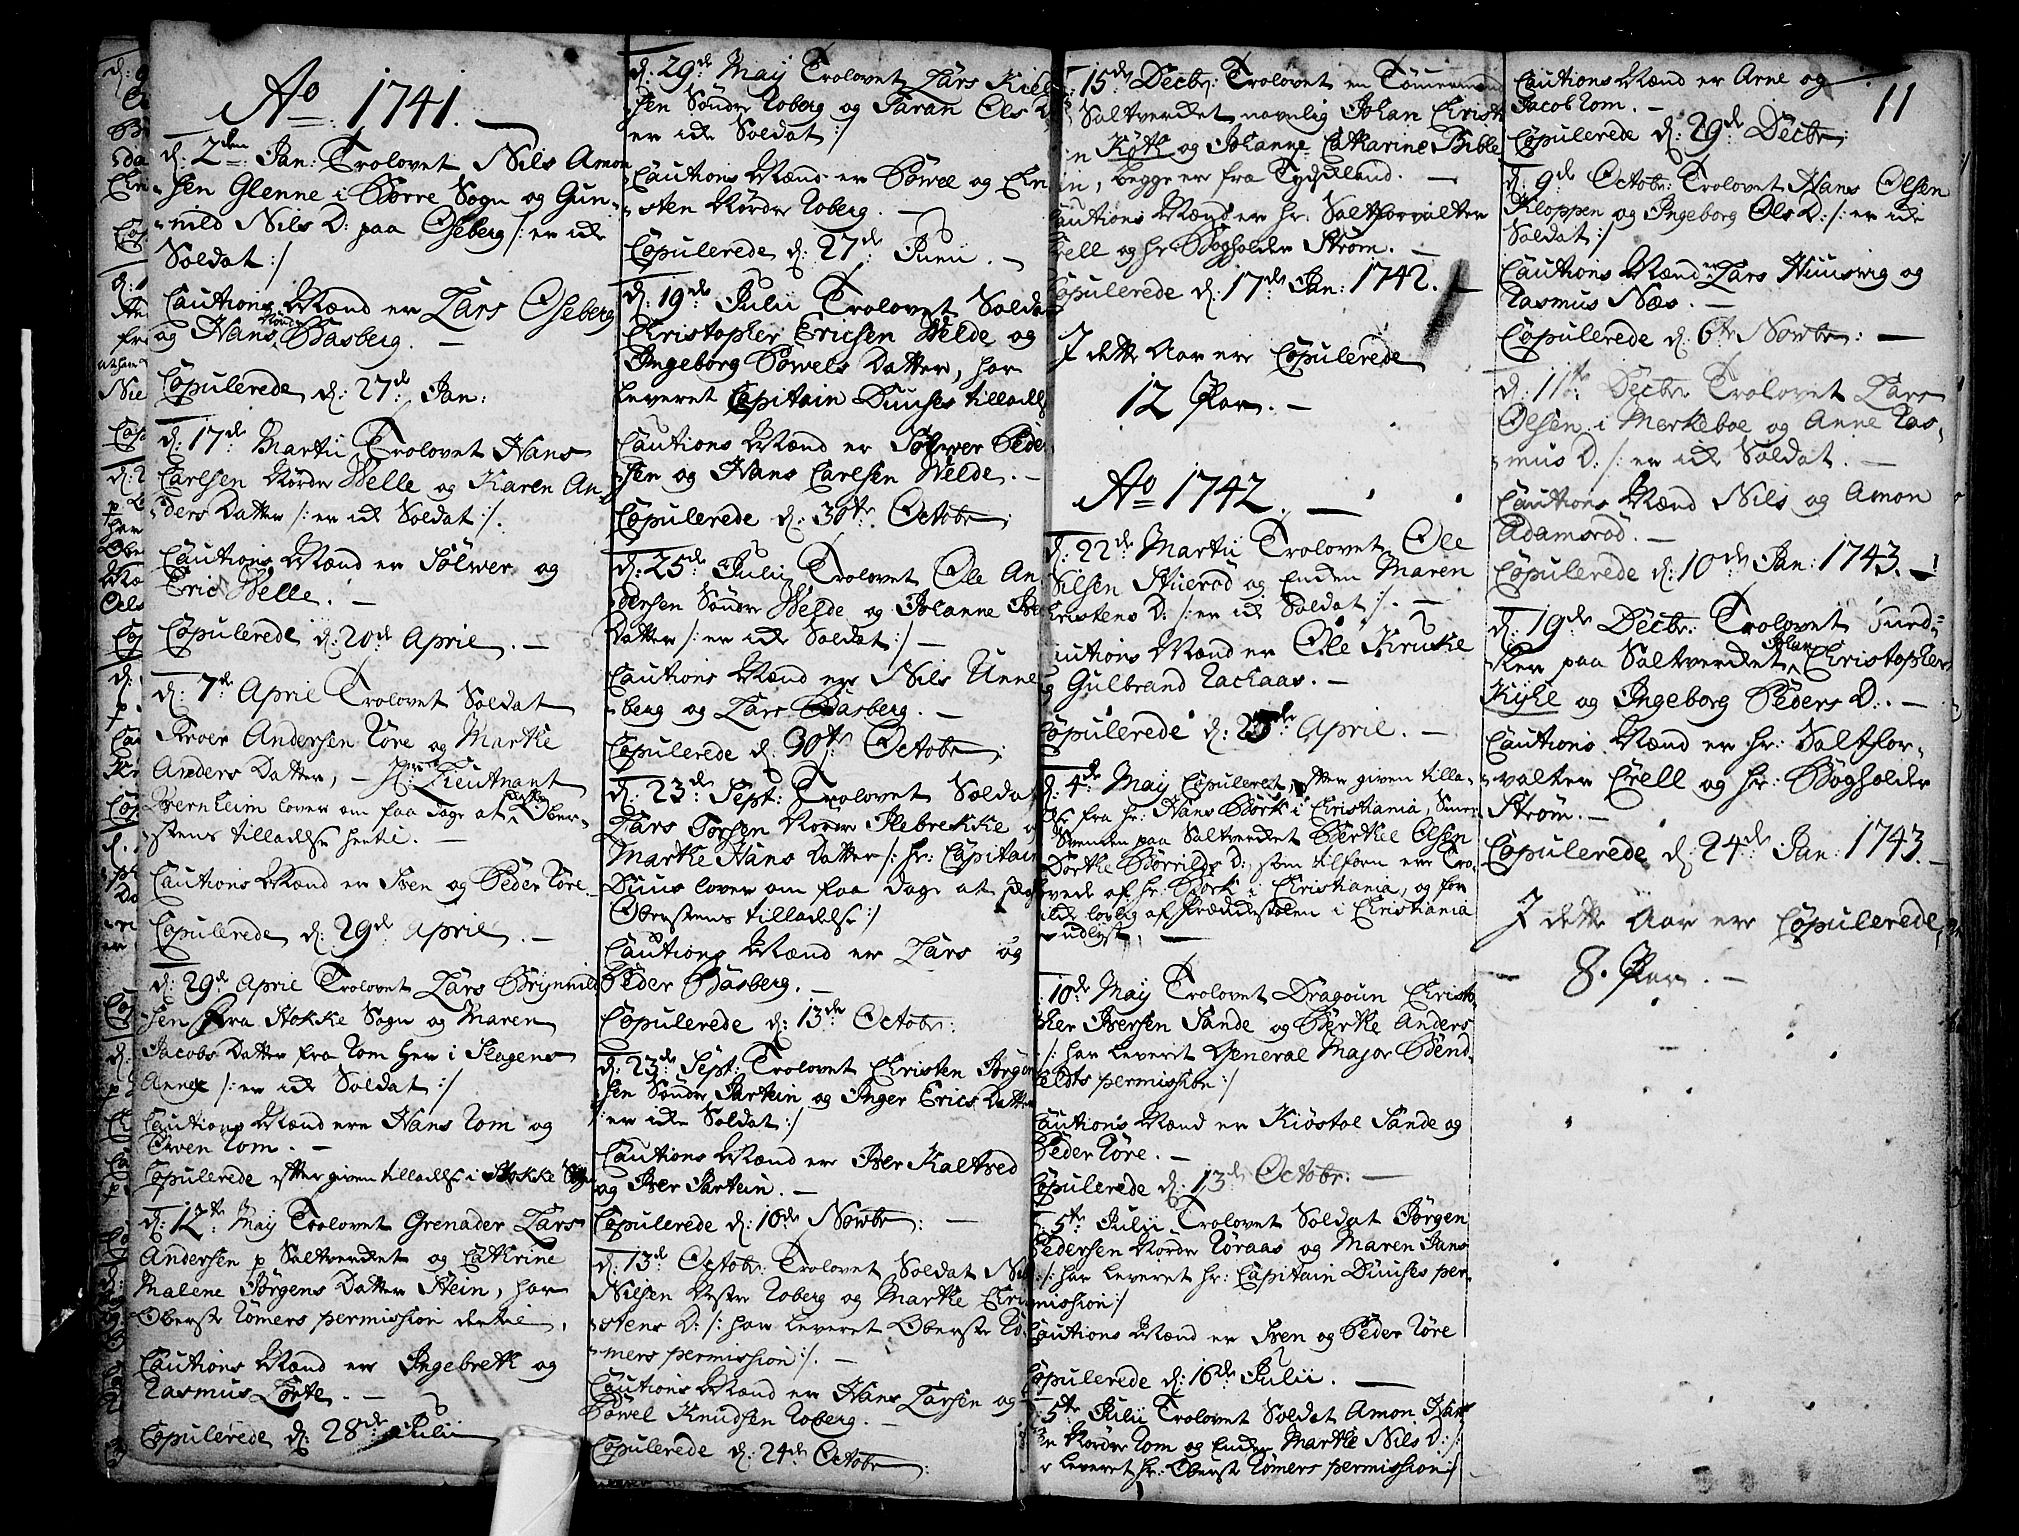 Ao 1741.
d: 2den Jan: Trolovet Nils Amon
sen Glenne i Borre Sogn og Gun-
nild Nils D: paa Oseberg /: er ick
Soldat :/
Cautions Mænd er Lars Oseberg
og Hans Nordr Basberg.
Copulerede d: 27de Jan:
d: 17de Martii Trolovet Hans
Carlsen Nordr Welle og Karen An-
ders Datter /: er ick Soldat :/.
Cautions Mænd er Sølwer og
Eric Welle.
Copulerede d: 20de April.
d: 7de April Trolovet Soldat
Broer Andersen Røre og Marthe
Anders Datter, Hr: Lieutnant
Wernheim lover om faa dage at Ober-
stens tilladelse hertil.
Cautions Mænd er Iver og Peder Røre.
Copulerede d: 29de April.
d: 29de April Trolovet Lars Brynnild
sen fra Stokke Sogn og Maren
Jacobs Datter fra Rom her i Slagens
Annex /: er ick Soldat :/
Cautions Mænd ere Hans Rom og
Iwen Rom.
Copulerede efter given tilladelse i Stokke
d: 12te May Trolovet Grenader Lars
Andersen p Saltverket og Cathrine
Malene Jørgens Datter Stein, har
Oberste Rømers permission dertil,
Cautions Mænd er Ingebreth og
Rasmus Torte.
Copulerede d: 28de Julii
d. 29de May Trolovet Lars Kield
sen Søndre Roberg og Saran Ols D
er ick Soldat :/
Cautions Mænd er Powel og Chri
sten Nordre Roberg.
Copulerede d: 27de Junii.
d: 19de Julii Trolovet Soldat
Christopher Ericsen Welde og
Ingeborg Powels Datter, har
leveret Capitain Duuses tilladels
Cautions Mænd er Sølwer Peder
sen og Hans Carlsen Welde.
Copulerede d: 30te Octobr:
d: 25de Julii Trolovet Ole An
dersen Søndr Welde og Johanne
Datter /: er ick Soldat :/
Cautions Mænd ere Nils Unne
berg og Lars Basberg.
Copulerede d: 30te Octobr:
d: 23de Sept: Trolovet Soldat
Lars Torsen Norre Ilebrekke o
Marthe Hans Datter /: hr: Capitain
Duus lover om faa dage at
Oberstens tilladelse :/
Cautions Mænd er Lars og
Peder Basberg.
Copulerede d: 13de Octobr:
d: 23de Sept: Trolovet Christen Jørgen
sen Søndre Jartein og Inger Erics Datter
/: er ick Soldat :/
Cautions Mænd er Iver Kaltved
og Iver Jartein.
Copulerede d: 10de Novbr:
d: 13de Octobr: Trolovet Soldat Nils
Nilsen Vestre Roberg og Marthe Chri
stens D: /: har leveret Oberste Rø-
mers permission :/.
Cautions Mænd er Hans Larsen og
Powel Knudsen Roberg.
Copulerede d: 24de Octobr:
15de Decbr: Trolovet en Tømermand
Saltverket navnlig Johan Christ
Køth og Johanne Catharine Bible
in, begge er fra Tydskland.
autions Mænd er hr. Saltforvalter
rell og hr: Bogholder Strøm.
opulerede d: 17de Jan: 1742.
I dette Aar ere Copulerede
12 Par.
Ao 1742.
d: 22de Martii Trolovet Ole
Nilsen Stuerød og Enken Maren
hristens D: /: er ick Soldat :/.
autions Mænd er Ole Kruke
og Gulbrand Rachaas.
opulerede d: 25de April.
d: 4de May Copuleret, efter given tilla-
else fra hr: Hans Børk i Christiania, Smed
Svenden paa Saltverket Berthel Olsen
Dorthe Børrilds D: som tilforn ere Tro-
vede af hr: Børk i Christiania, og for
af Prædikestolen i Christiania
udlyst.
10de May Trolovet Dragoun Christo-
pher Iversen Sande og Berthe Anders
/: har leveret General Major Bend-
eldts permission :/
Cautions Mænd er Kiøstol Sande og
Peder Røre.
Copulerede d: 13de Octobr:
5te Julii Trolovet Soldat Jørgen
Pedersen Nordre Røraas og Maren Jans
/: har leveret hr: Capitain Duuses per-
mission :/
Cautions Mænd er Iver og Peder Røre
Copulerede d: 16de Julii.
5te Julii Trolovet Soldat Amon Hans
en Nordre Rom og Enken Marthe Nils D: /:
r leveret hr: Oberst Rømers permission :/
Cautions Mænd er Arne og
Jacob Rom.
Copulerede d: 29de Decbr:
11
d: 9de Octobr: Trolovet Hans Olsen
Kloppen og Ingeborg Ols D: /: er ick
Soldat :/
Cautions Mænd er Lars Huuswig og
Rasmus Næs.
Copulerede d: 6te Novbr:
d: 11te Decbr: Trolovet Lars
Olsen i Merkeboe og Anne Ras-
mus D: /: er ick Soldat.
Cautions Mænd Nils og Amon
Adamsrød.
Copulerede d: 10de Jan: 1743.
d: 19de Decbr: Trolovet
ker paa Saltverket Johan Christopher
Kyhl og Ingeborg Peders D:.
Cautions Mænd er hr: Saltfor-
valter Crell og hr: Bogholder
Strøm.
Copulerede d: 24de Jan: 1743.
I dette Aar er Copulerede
8. Par.